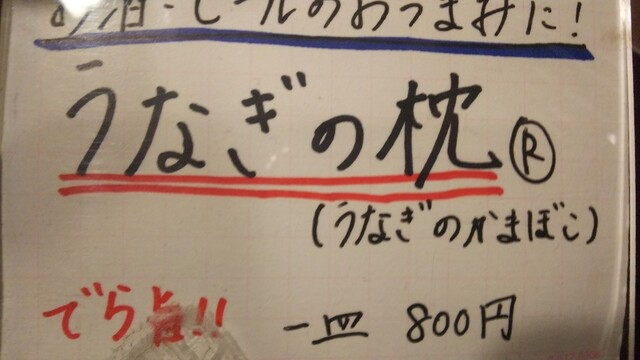 お酒・ビールのおつまみに!
うなぎの枕®
(うなぎのかまぼこ)
でら旨!! 一皿 800円